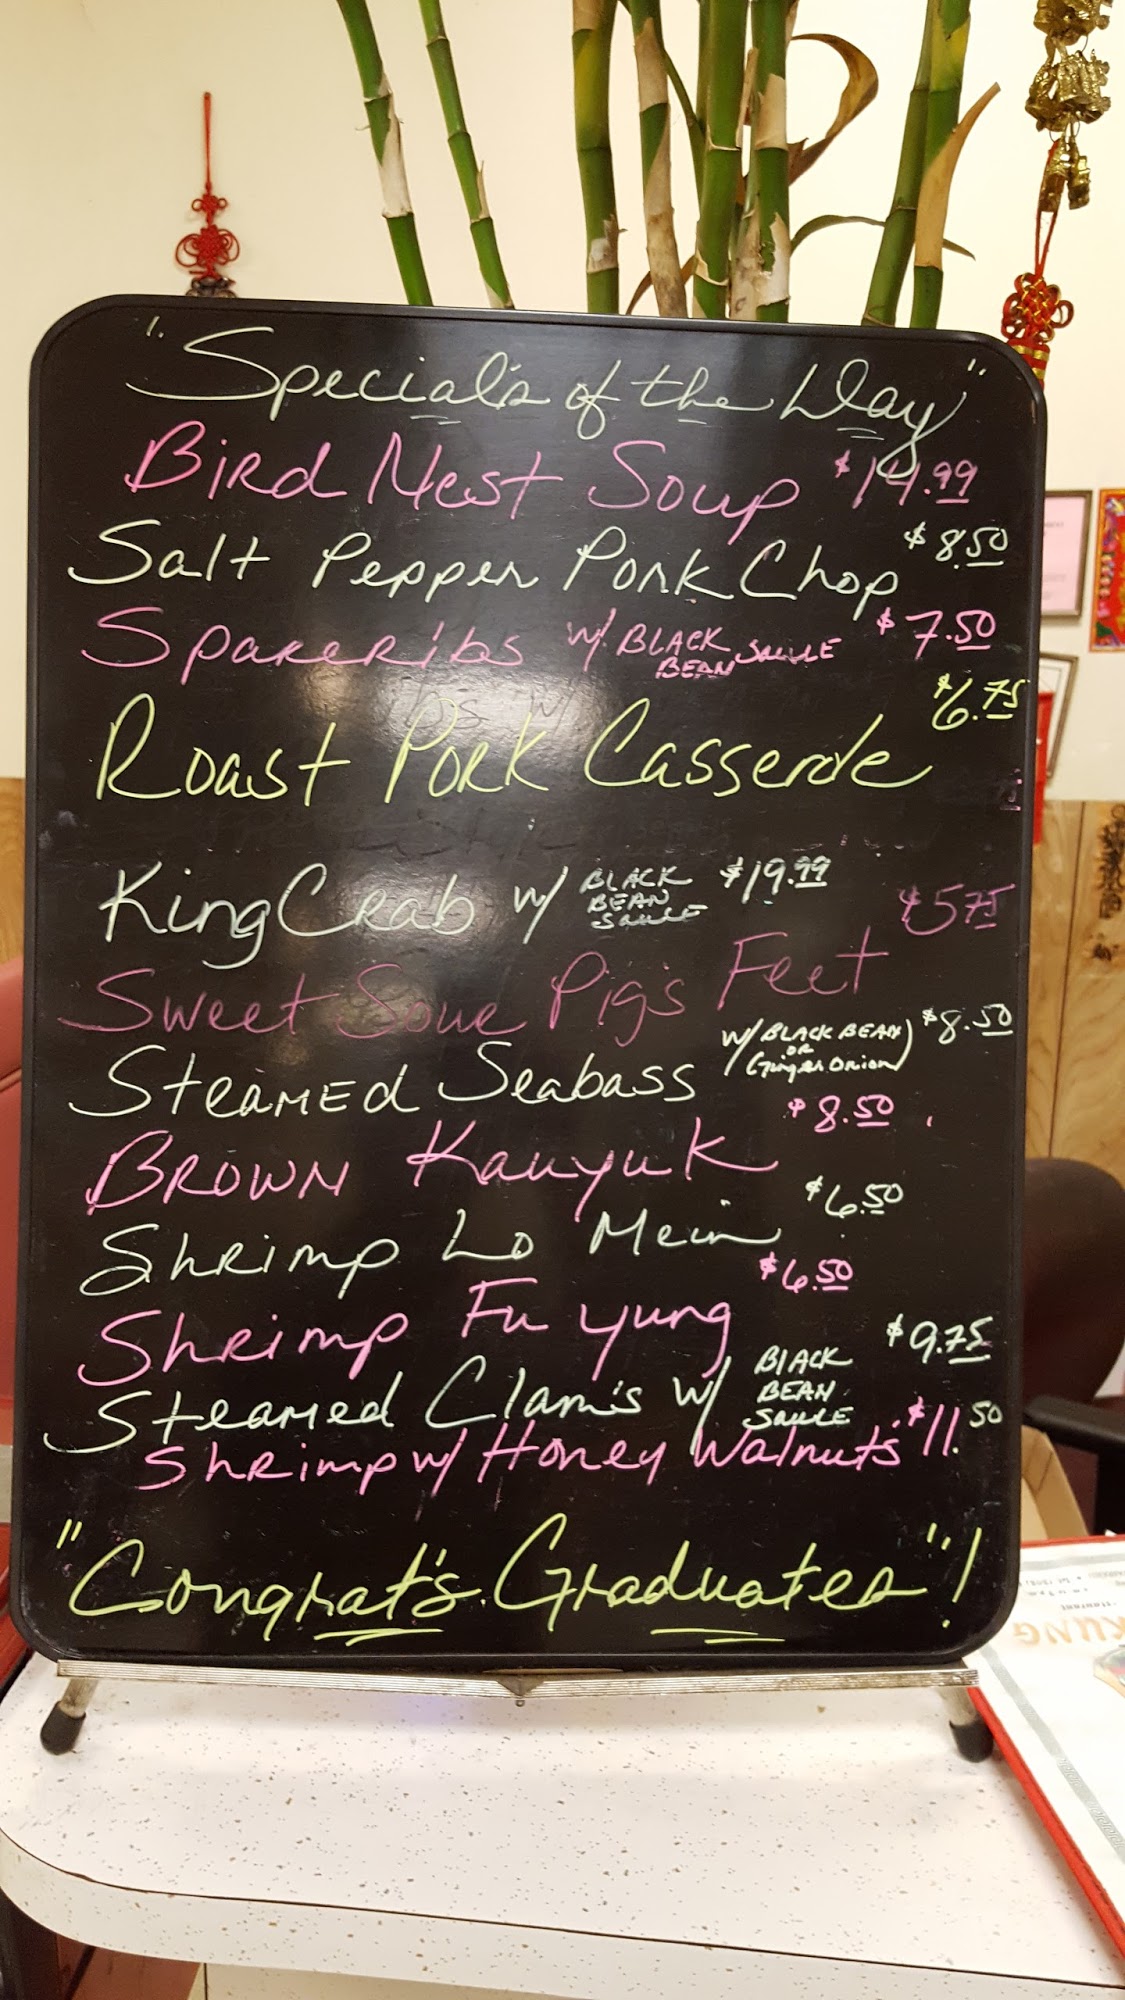 "Special's of the Day"
Bird Nest Soup $14.99
Salt Pepper Pork Chop $8.50
Spareribs w/ BLACK BEAN SAUCE $7.50
Roast Pork Casserole $6.75
King Crab w/ BLACK BEAN SAUCE $19.99
Sweet Sour Pig's Feet $5.75
Steamed Seabass w/ BLACK BEAN OR Ginger Onion) $8.50
BROWN Kauyuk $8.50
Shrimp Lo Mein $6.50
Shrimp Fu yung $6.50
Steamed Clam's w/ BLACK BEAN SAUCE $9.75
Shrimp w/ Honey Walnuts $11.50
"Congrat's Graduates"!
KUNG